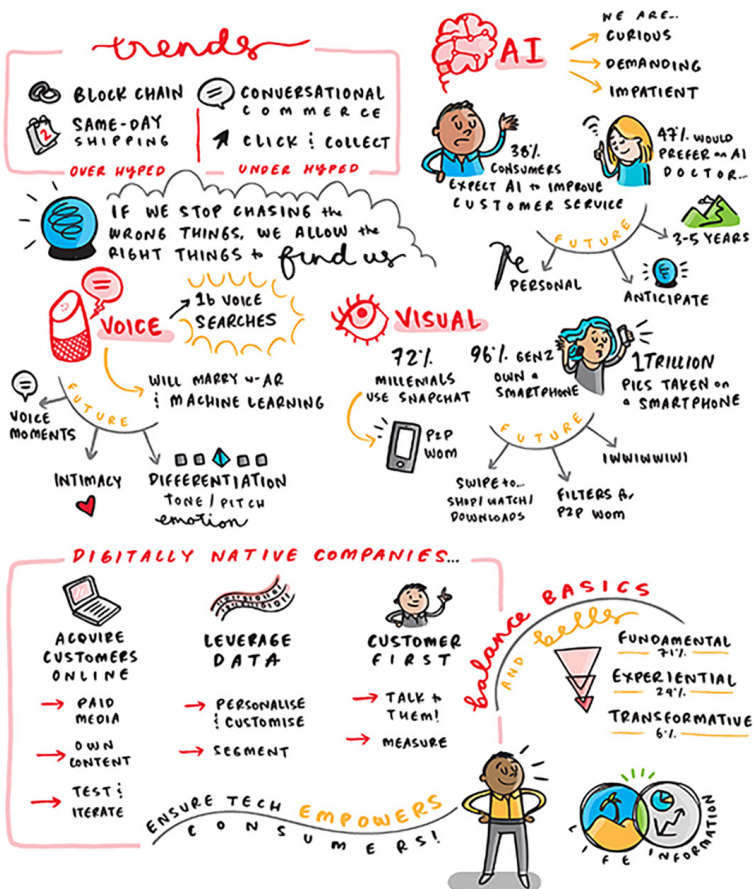 trends
BLOCK CHAIN
SAME-DAY
SHIPPING
2
OVER HYPED
CONVERSATIONAL
COMMERCE
CLICK & COLLECT
UNDER HYPED
AI
WE ARE...
CURIOUS
DEMANDING
IMPATIENT
38%
CONSUMERS
EXPECT AI to IMPROVE
CUSTOMER SERVICE
47% WOULD
PREFER an AI
DOCTOR...
FUTURE
PERSONAL
ANTICIPATE
3-5 YEARS
IF WE STOP CHASING the
WRONG THINGS, WE ALLOW the
RIGHT THINGS to find us
VOICE
1b VOICE
SEARCHES
WILL MARRY w-AR
& MACHINE LEARNING
FUTURE
VOICE
MOMENTS
INTIMACY
DIFFERENTIATION
TONE / PITCH
emotion
VISUAL
72%
MILLENIALS
USE SNAPCHAT
P2P
WOM
96% GENZ
OWN a
SMARTPHONE
1 TRILLION
PICS TAKEN on
a SMARTPHONE
FUTURE
SWIPE to...
SHOP/WATCH/
DOWNLOADS
FILTERS for
P2P WOM
IWWIWWIWI
DIGITALLY NATIVE COMPANIES...
ACQUIRE
CUSTOMERS
ONLINE
PAID
MEDIA
OWN
CONTENT
TEST &
ITERATE
LEVERAGE
DATA
PERSONALISE
& CUSTOMISE
SEGMENT
CUSTOMER
FIRST
TALK to
THEM!
MEASURE
balance BASICS
AND bells
FUNDAMENTAL
71%
EXPERIENTIAL
29%
TRANSFORMATIVE
6%
ENSURE TECH EMPOWERS
CONSUMERS!
LIFE INFORMATION